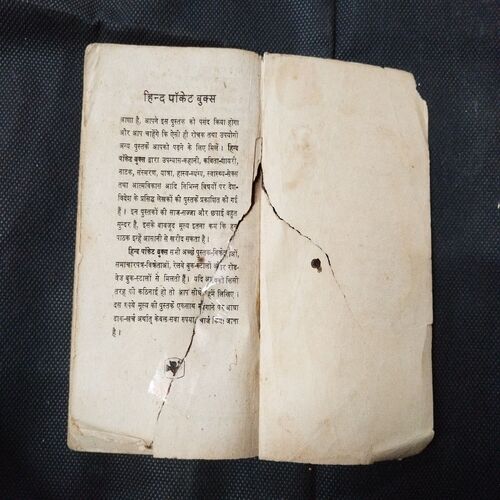 हिन्द पॉकेट बुक्स
आशा है, आपने इस पुस्तक को पसंद किया होगा
और आप चाहेंगे कि ऐसी ही रोचक तथा उपयोगी
अन्य पुस्तकें आपको पढ़ने के लिए मिलें। हिन्द
पॉकेट बुक्स द्वारा उपन्यास-कहानी, कविता-शायरी,
नाटक, संस्मरण, यात्रा, हास्य-व्यंग्य, स्वास्थ्य-सेक्स
तथा आत्मविकास आदि विभिन्न विषयों पर देश-
विदेश के प्रसिद्ध लेखकों की पुस्तकें प्रकाशित की गई
हैं। इन पुस्तकों की साज-सज्जा और छपाई बहुत
सुन्दर है, इसके बावजूद मूल्य इतना कम कि हर
पाठक इन्हें आसानी से खरीद सकता है।
हिन्द पॉकेट बुक्स सभी अच्छे पुस्तक-विक्रेताओं,
समाचारपत्र-विक्रेताओं, रेलवे बुक-स्टालों और रोड-
वेज बुक-स्टालों से मिलती हैं। यदि आपको किसी
तरह की कठिनाई हो तो आप सीधे हमें लिखिए।
दस रुपये मूल्य की पुस्तकें एकसाथ मंगाने पर आधा
डाक-खर्च अर्थात् केवल सवा रुपया चार्ज किया जाता
है।